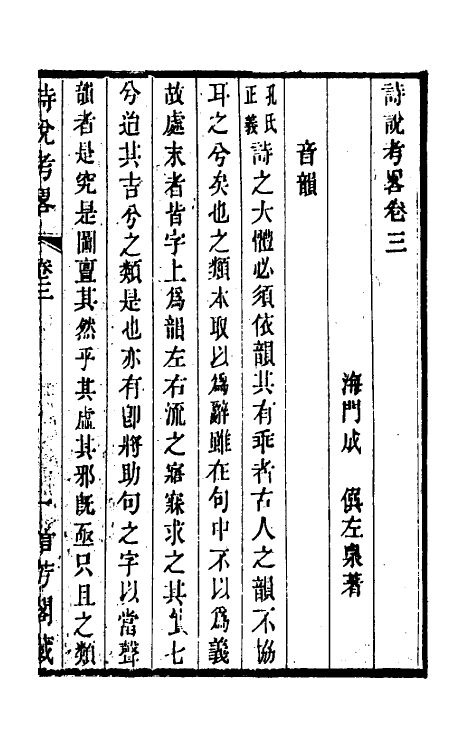 詩說考畧卷三
海門成僎左泉著
音韻
孔氏正義詩之大體必須依韻其有乖者古人之韻不協
耳之兮矣也之類本取以爲辭雖在句中不以爲義
故處末者皆字上爲韻左右流之寤寐求之其實七
兮迨其吉兮之類是也亦有卽將助句之字以當聲
韻者是究是圖亶其然乎其虛其邪旣亟只且之類
詩說考畧
卷三
一
芳閣藏